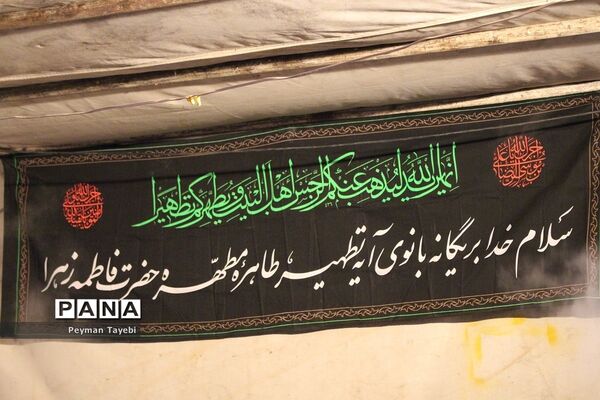 انما یرید الله لیذهب عنکم الرجس اهل البیت و یطهرکم تطهیرا
سلام خدا بر یگانه بانوی آیه تطهیر، طاهرهٔ مطهّره حضرت فاطمه زهرا
PANA
Peyman Tayebi